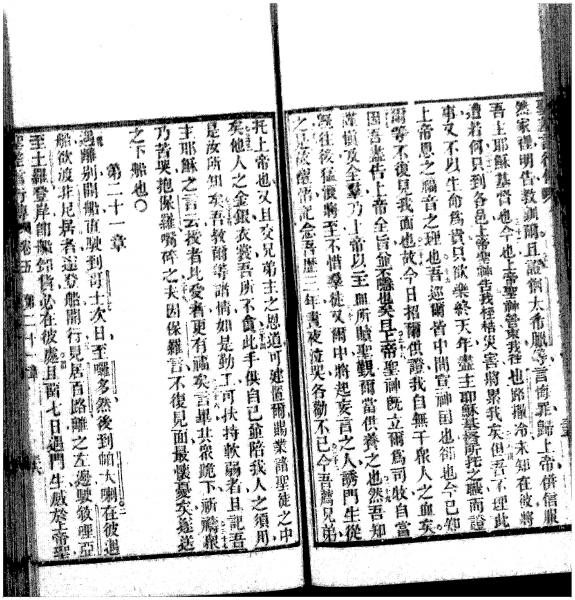 然家裡明告教訓爾且證猶大希臘等言悔罪歸上帝併信服
吾上耶穌基督也今也上帝聖神嘗與我往也路撒冷未知在彼將
遭若何只到各邑上帝聖神告我桎梏災害將累我矣但吾不理此
事又不以生命為貴只欲樂終天年盡主耶穌基督所托之職而證
上帝恩之福音之理也吾巡爾皆中間宣神國也卻也今已知
爾等不復見我面也故今日招爾供證我自無干衆人之血矣
因吾盡告上帝全旨並不隱也矣且上帝聖神既立爾為司牧自當
謹慎及全羣乃上帝以血所贖聖觀爾當供養之也然吾知
往後猛狼將至不惜羣徒又爾中將起亥言之人誘門生從
之常記念吾歷三年晝夜泣哭各勸不已今吾薦兄弟
托上帝也又且交兄弟主之恩道可建置爾賜業諸聖徒之中
矣他人之金銀衣裳吾所不貪此手供自己並陪我人之須用
是汝所知矣吾教爾等諸情如是勤工可扶持軟弱者且記吾
主耶穌之言云授者比受者更有福矣言畢共衆跪下祈禱衆
乃苦哭抱保羅嘴碎之夫因保羅言不復見面最懷憂矣遂送
之下船也○
第二十一章
遇離別開船直駛到哥士次日至囉多然後到帕大喇在彼遇
船欲渡非尼居者遂登船開行見居百路離之左邊駛敘哩亞
至土羅登岸即船卸貨必在彼處且留七日遇門生感於上帝聖